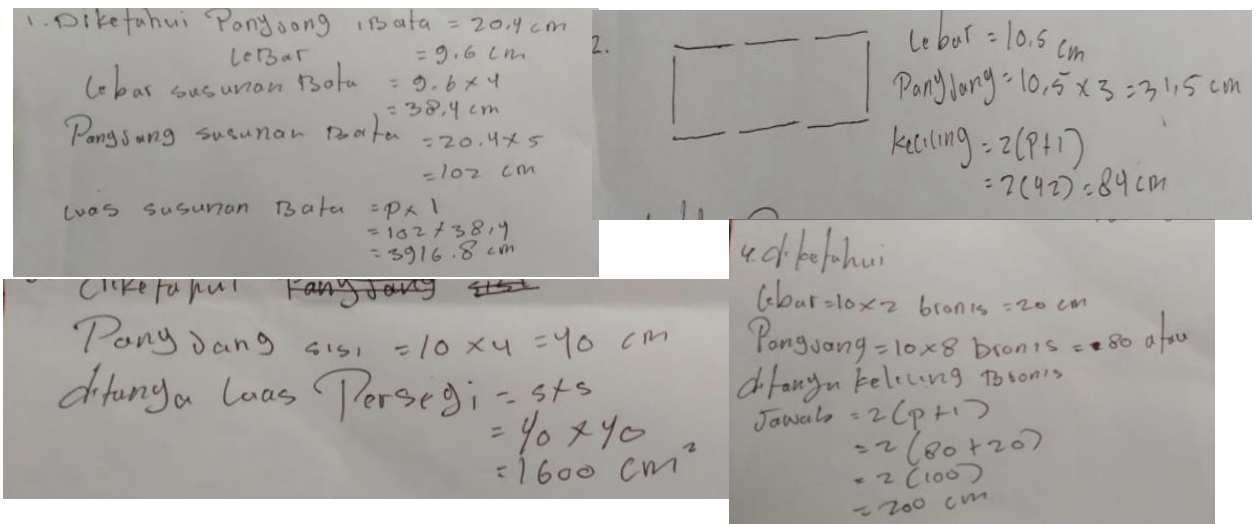 1. Diketahui Pangjang 1 Bata = 20.4 cm
LeBar = 9.6 cm
Lebar susunan Bata = 9.6 x 4
= 38,4 cm
Pangjang susunan Bata = 20.4 x 5
= 102 cm
Luas susunan Bata = p x l
= 102 x 38,4
= 3916.8 cm
2.
Lebar = 10,5 cm
Pangjang = 10,5 x 3 = 31,5 cm
keliling = 2(p+l)
= 2(42) = 84 cm
diketahui Pangjang sisi
Pangjang sisi = 10 x 4 = 40 cm
ditanya luas Persegi = s x s
= 40 x 40
= 1600 cm²
4. diketahui
Lebar = 10 x 2 bronis = 20 cm
Pangjang = 10 x 8 bronis = 80 atau
ditanya keliling Bronis
Jawab = 2(p+l)
= 2(80+20)
= 2(100)
= 200 cm